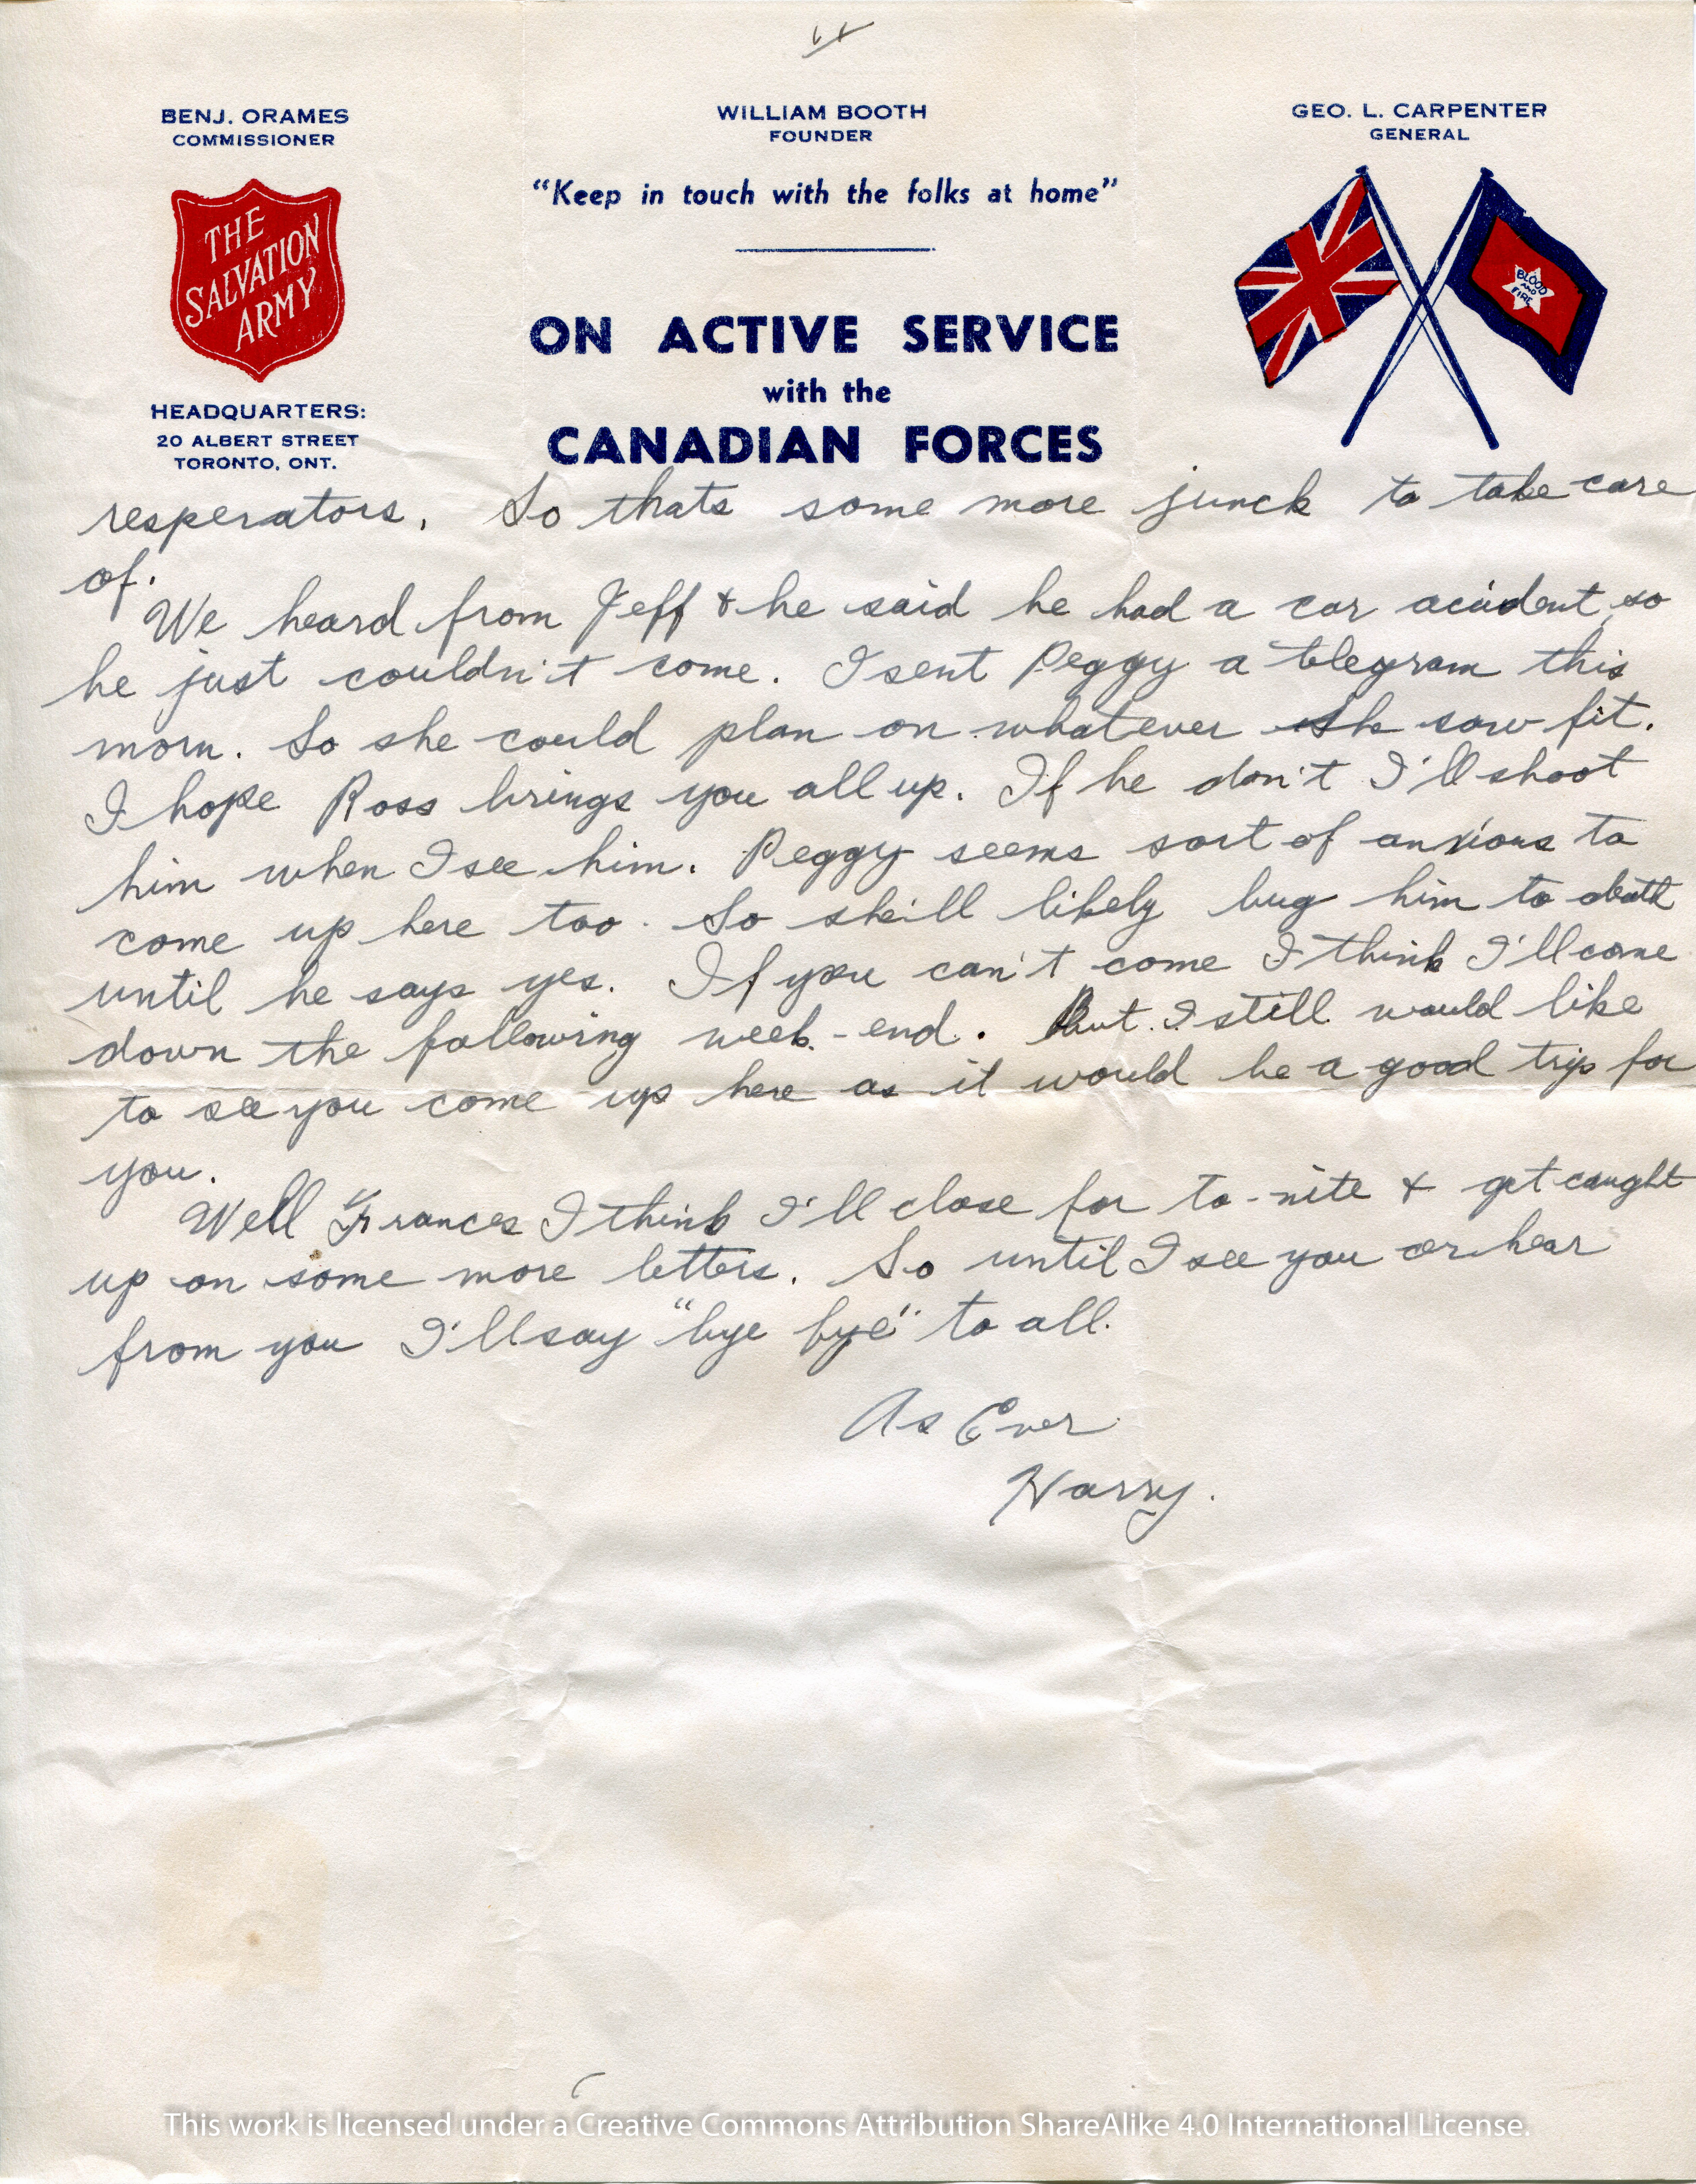 BENJ. ORAMES
COMMISSIONER
THE
SALVATION
ARMY
HEADQUARTERS:
20 ALBERT STREET
TORONTO, ONT.
WILLIAM BOOTH
FOUNDER
"Keep in touch with the folks at home"
ON ACTIVE SERVICE
with the
CANADIAN FORCES
GEO. L. CARPENTER
GENERAL
BLOOD
AND
FIRE
resperators. So thats some more junck to take care
of.
We heard from Jeff & he said he had a car acident, so
he just couldn't come. I sent Peggy a telegram this
morn. So she could plan on whatever she saw fit.
I hope Ross brings you all up. If he don't I'll shoot
him when I see him. Peggy seems sort of anxious to
come up here too. So she'll likely bug him to death
until he says yes. If you can't come I think I'll come
down the following week-end. But I still would like
to see you come up here as it would be a good trip for
you.
Well Frances I think I'll close for to-nite & get caught
up on some more letters. So until I see you or hear
from you I'll say "bye bye" to all.
As Ever
Harry.
This work is licensed under a Creative Commons Attribution ShareAlike 4.0 International License.